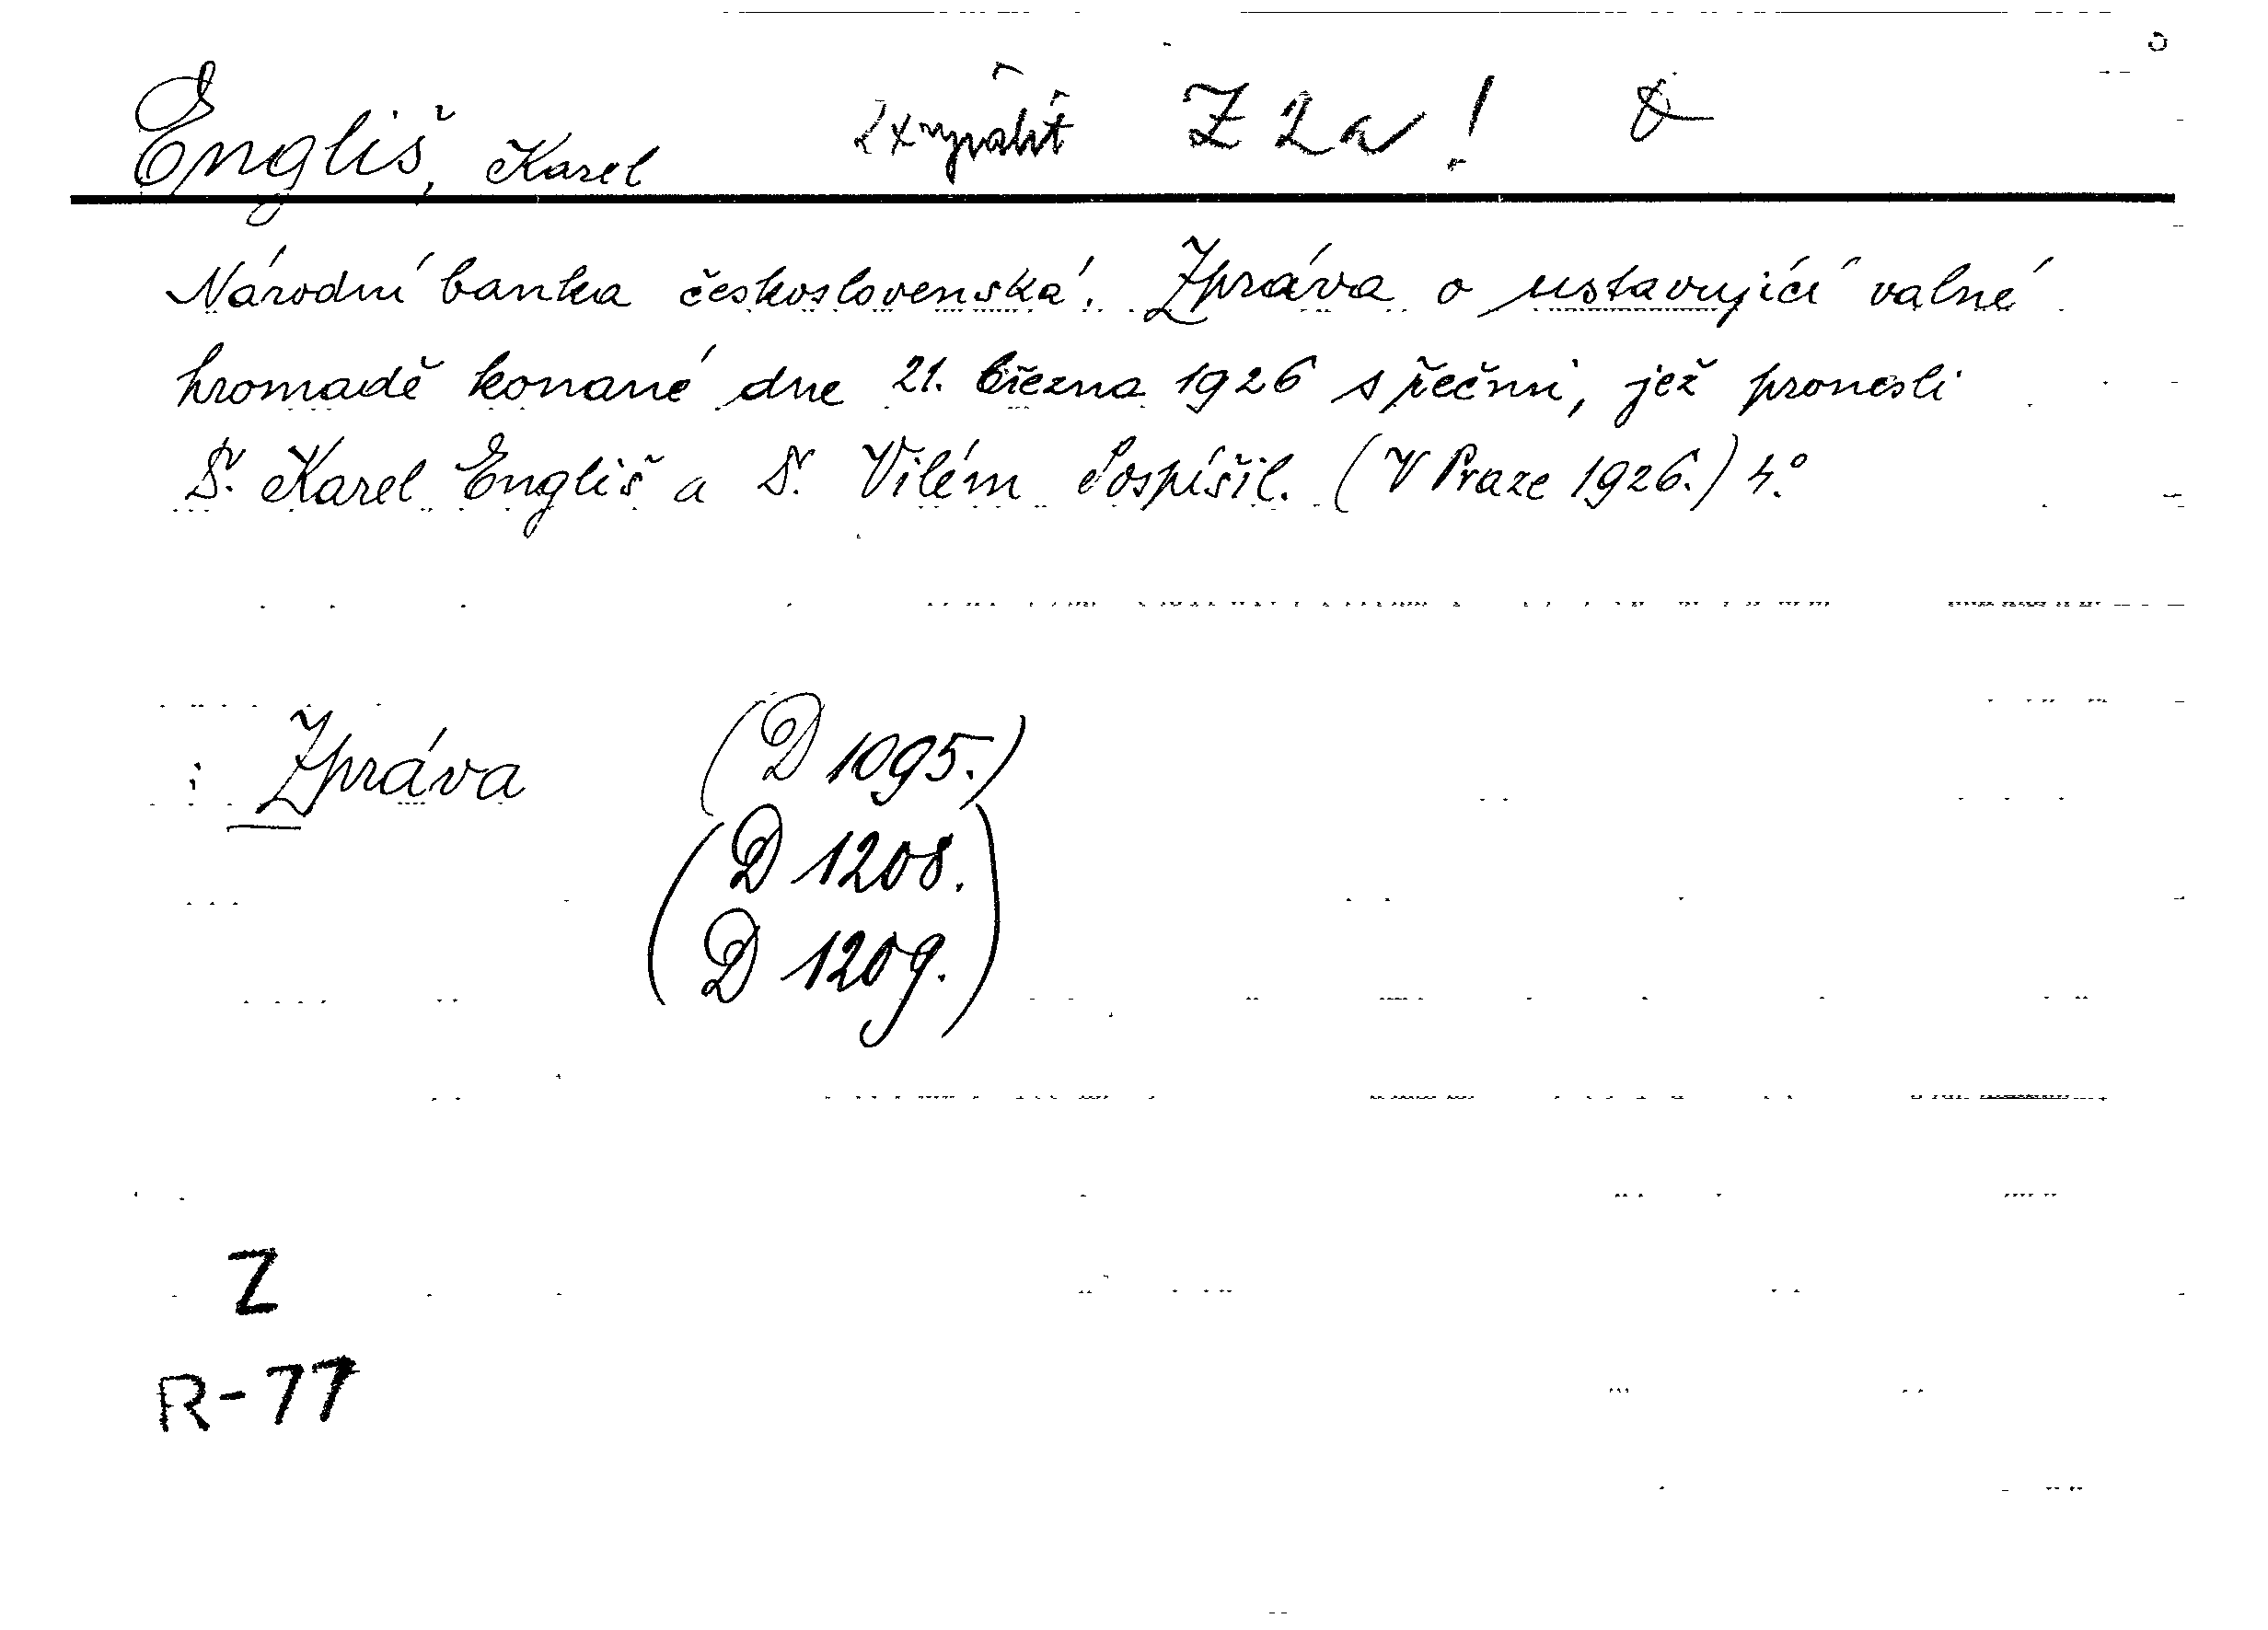 Engliš, Karel 2x Z 2a!
Národní banka československá. Zpráva o ustavující valné
hromadě konané dne 21. března 1926 s řečmi, jež pronesli
Dr. Karel Engliš a Dr. Vilém Pospíšil. (V Praze 1926.) 4.°
: Zpráva (D 1095.)
(D 1208.
D 1209.)
Z
R-77